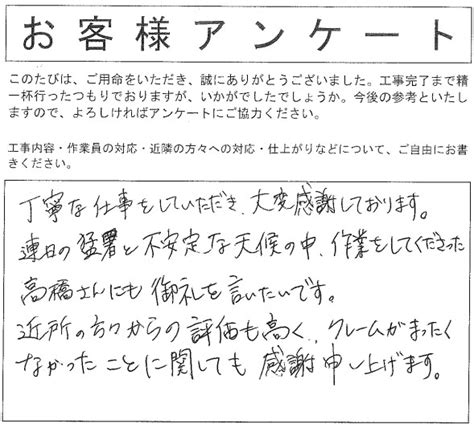 お客様アンケート
このたびは、ご用命をいただき、誠にありがとうございました。工事完了まで精
一杯行ったつもりでおりますが、いかがでしたでしょうか。今後の参考といたし
ますので、よろしければアンケートにご協力ください。
工事内容・作業員の対応・近隣の方々への対応・仕上がりなどについて、ご自由にお書
きください。
丁寧な仕事をしていただき、大変感謝しております。
連日の猛署と不安定な天候の中、作業をしてくださった
高橋さんにも御礼を言いたいです。
近所の方々からの評価も高く、クレームがまったく
なかったことに関しても感謝申し上げます。